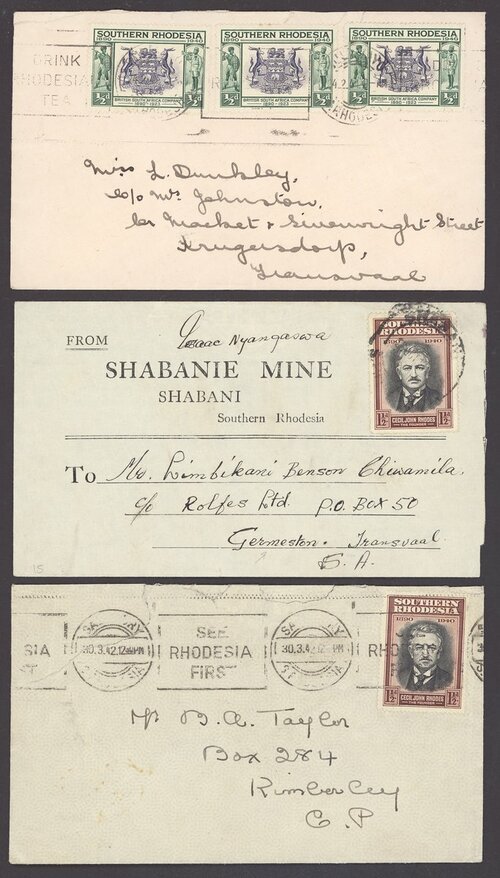 DRINK
RHODESIA
TEA
SOUTHERN RHODESIA
1890 1940
BRITISH SOUTH AFRICA COMPANY
1890 - 1923
½d ½d
SOUTHERN RHODESIA
1890 1940
BRITISH SOUTH AFRICA COMPANY
1890 - 1923
½d ½d
SOUTHERN RHODESIA
1890 1940
BRITISH SOUTH AFRICA COMPANY
1890 - 1923
½d ½d
Miss L. Dunkley,
c/o Mrs Johnston,
Cr Market & Sivewright Street
Krugersdorp,
Transvaal
FROM Isaac Nyangaswa
SHABANIE MINE
SHABANI
Southern Rhodesia
SOUTHERN
RHODESIA
1890 1940
CECIL JOHN RHODES
THE FOUNDER
1½d 1½d
To Mr. Limbikani Benson Chiwamila.
c/o Rolfes Ltd. P.O. BOX 50
Germeston. Transvaal.
S. A.
15
SIA
SA RY
30.3.42.12 PM
S. SIA
SEE
RHODESIA
FIRST
SA
30.3.42 12 PM
SIA
RHO
SOUTHERN
RHODESIA
1890 1940
CECIL JOHN RHODES
THE FOUNDER
1½d 1½d
Mr B. A. Taylor
Box 284
Kimberley
C. P